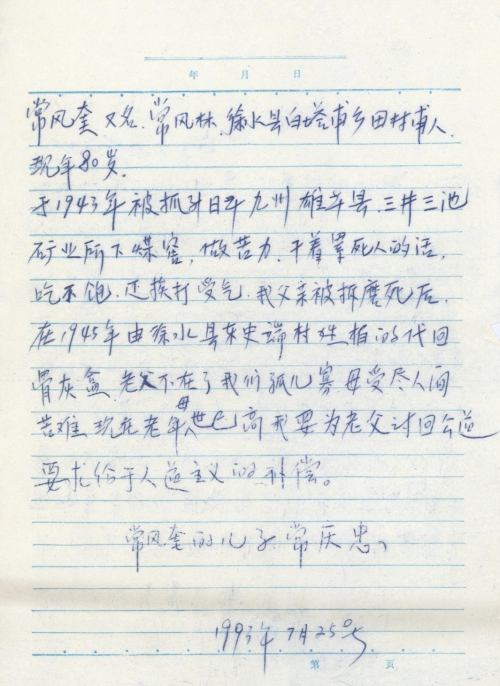 年 月 日
常风奎又名.常风林.徐水县白塔甫乡田村甫人.
现年80岁.
于1943年被抓到日本九州 雄本县.三井三池
矿业所下煤窑,做苦力.干着累死人的活,
吃不饱.还挨打受气.我父亲被折磨死后.
在1945年由徐水县东史端村姓 的代回
骨灰盒.老父不在了我们孤儿寡母受尽人间
苦难.现在老母年 已高我要为老父讨回公道
要求给于人道主义的补偿。
常风奎的儿子常庆忠
1993年.7月25号
第 页